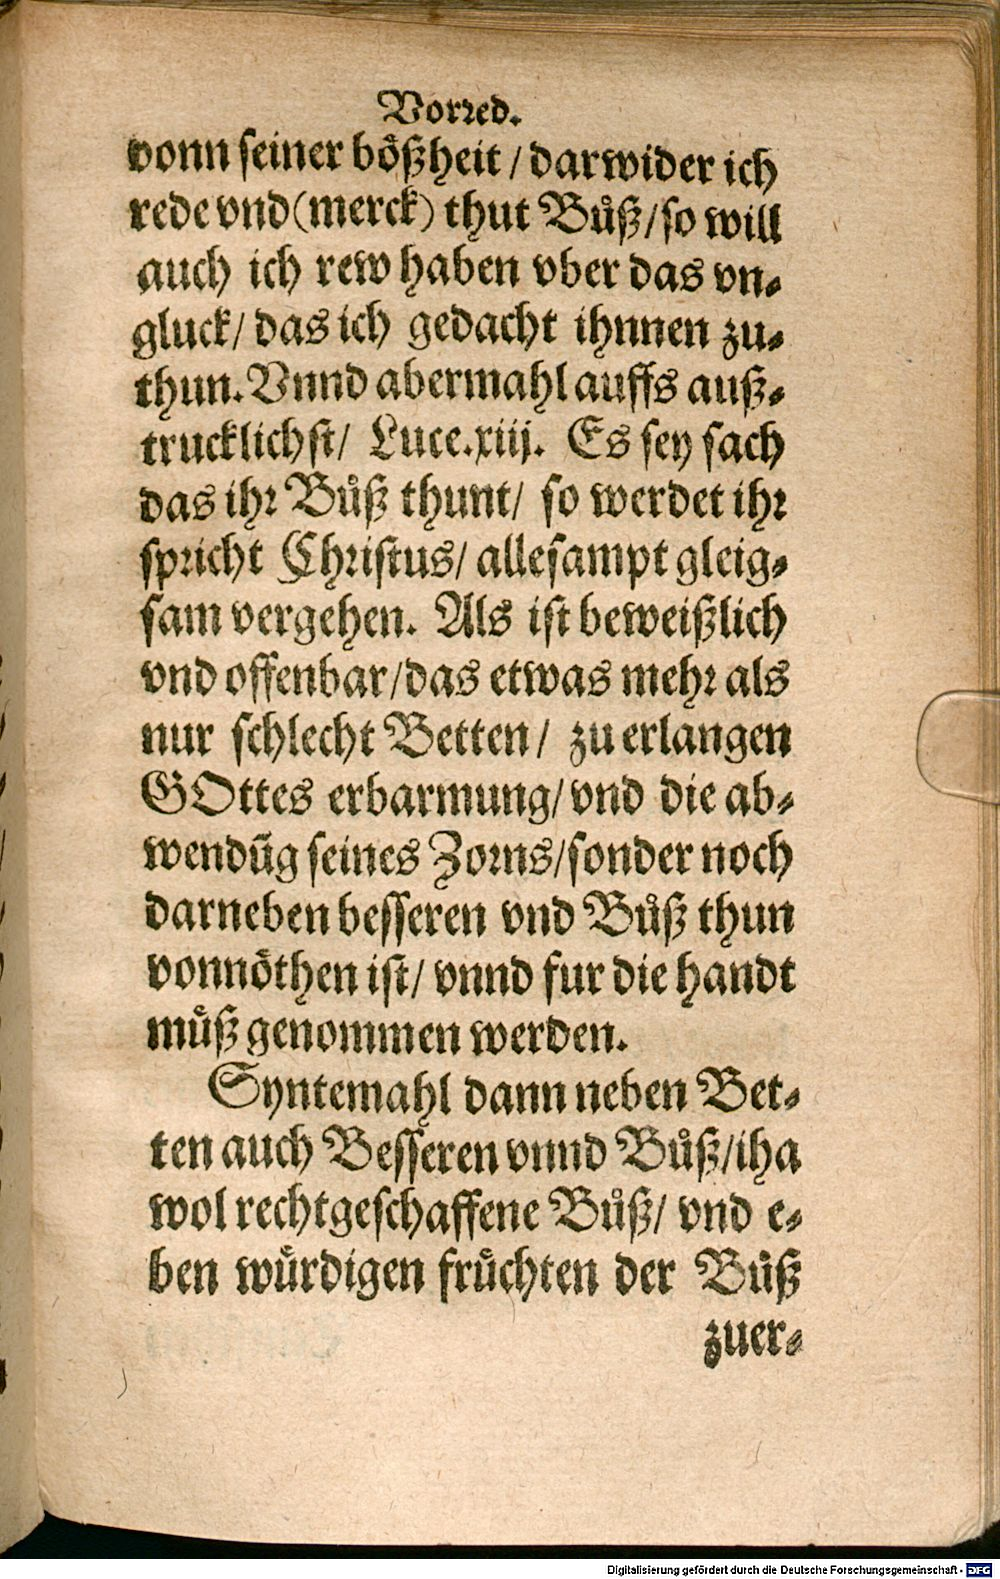 Vorred.
vonn seiner bößheit / darwider ich
rede vnd (merck) thut Bůß / so will
auch ich rew haben vber das vn⸗
gluck / das ich gedacht ihnnen zu⸗
thun. Vnnd abermahl auffs auß⸗
trucklichst / Luce. xiij. Es sey sach
das ihr Bůß thunt / so werdet ihr
spricht Christus / allesampt gleig⸗
sam vergehen. Als ist beweißlich
vnd offenbar / das etwas mehr als
nur schlecht Betten / zu erlangen
GOttes erbarmung / vnd die ab⸗
wendūg seines Zorns / sonder noch
darneben besseren vnd Bůß thun
vonnöthen ist / vnnd fur die handt
můß genommen werden.
Syntemahl dann neben Bet⸗
ten auch Besseren vnnd Bůß / iha
wol rechtgeschaffene Bůß / vnd e⸗
ben wůrdigen frůchten der Bůß
zuer⸗
Digitalisierung gefördert durch die Deutsche Forschungsgemeinschaft - DFG